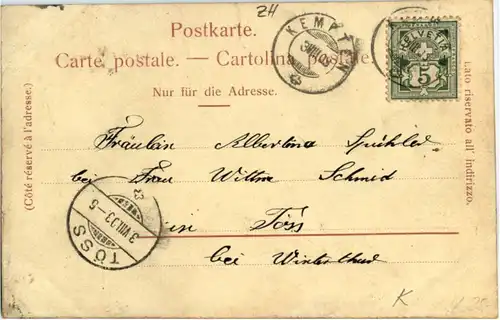 ZH
Postkarte.
Carte postale. — Cartolina postale.
Nur für die Adresse.
KEMPTEN
HELVETIA
5
(Côté réservé à l'adresse.)
Lato riservato all' indirizzo.
Fräulein Albertina Spühler
bei Frau Wittwe Schmid
in Töss
bei Winterthur
TÖSS
3.VIII.03-6
K